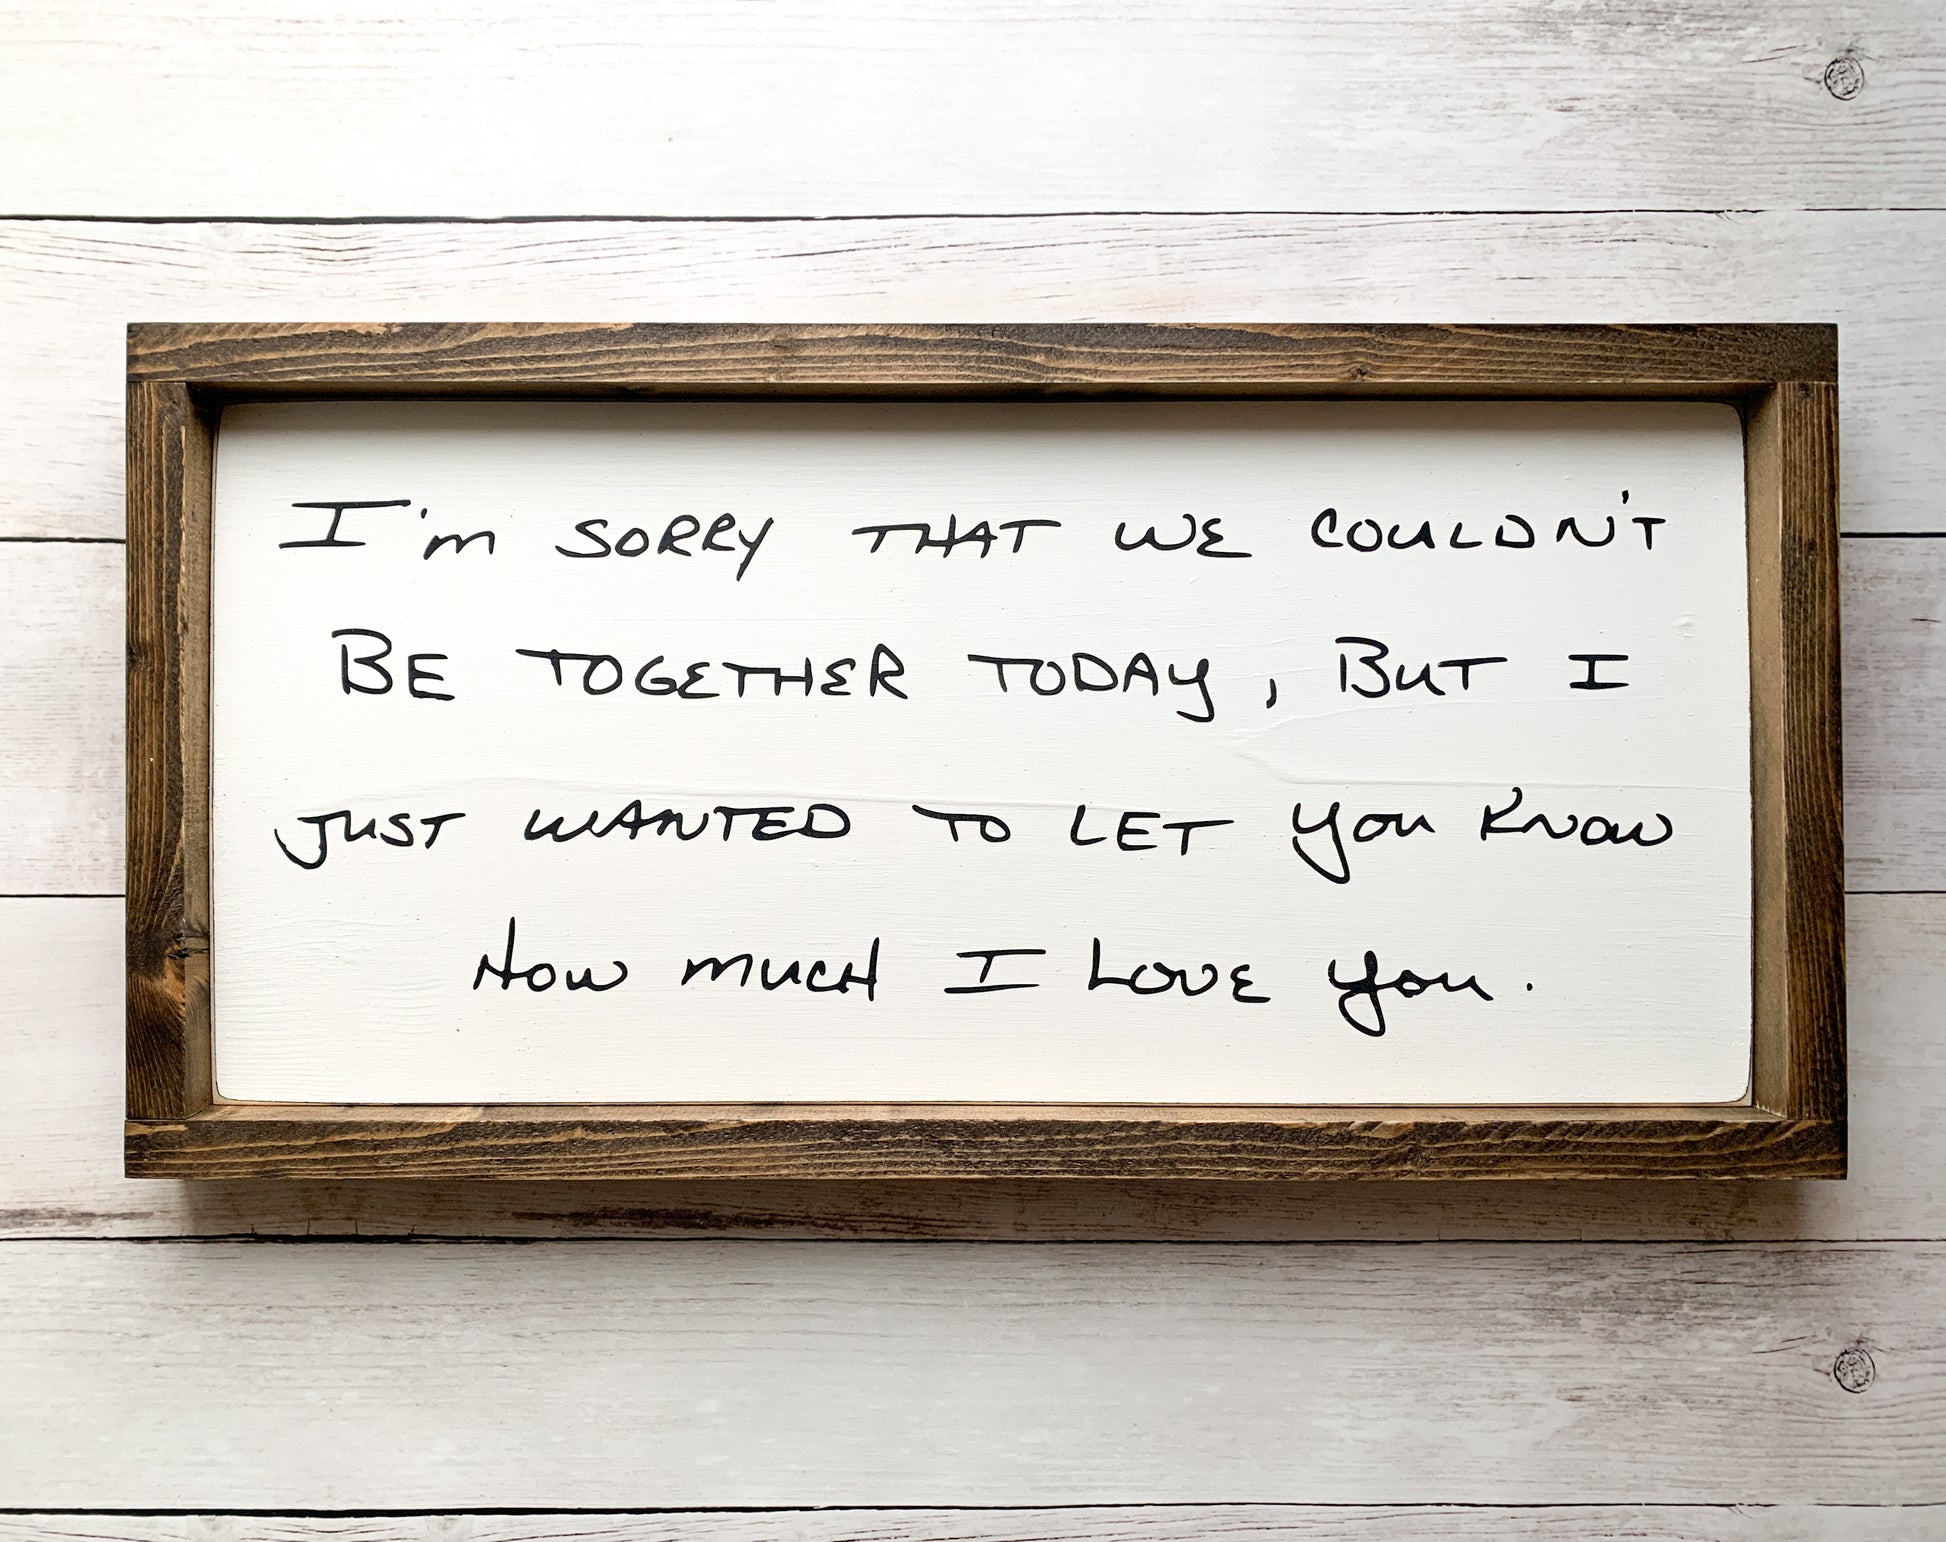 I'm SORRY THAT WE COULDN'T
BE TOGETHER TODAY, BUT I
JUST WANTED TO LET YOU KNOW
HOW MUCH I LOVE YOU.